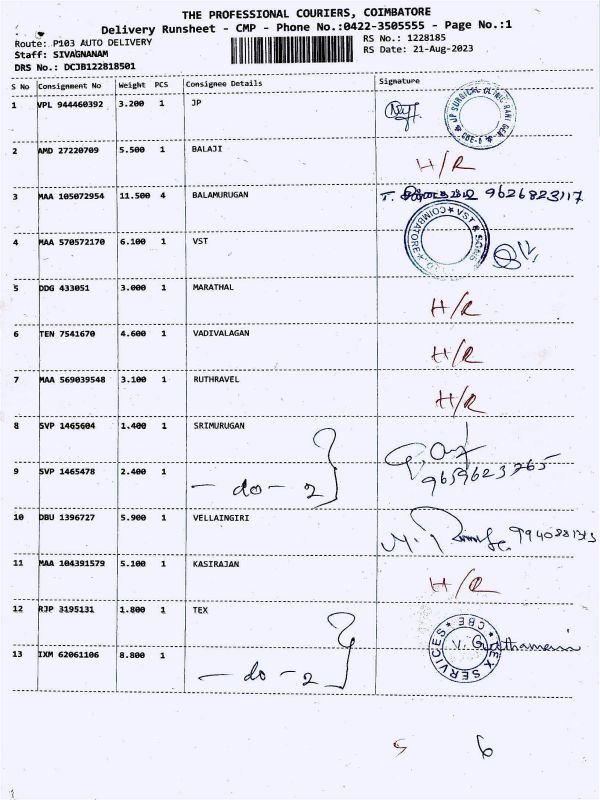 THE PROFESSIONAL COURIERS, COIMBATORE
Delivery Runsheet - CMP - Phone No.:0422-3505555 - Page No.:1
Route: P103 AUTO DELIVERY RS No.: 1228185
Staff: SIVAGNANAM RS Date: 21-Aug-2023
DRS No.: DCJB122818501
S No Consignment No Weight PCS Consignee Details Signature
1 VPL 944460392 3.200 1 JP
JP SURGICAL CLINIC CBE-6
2 AMD 27220709 5.500 1 BALAJI H/R
3 MAA 105072954 11.500 4 BALAMURUGAN 9626823117
4 MAA 570572170 6.100 1 VST
COIMBATORE
5 DDG 433051 3.000 1 MARATHAL H/R
6 TEN 7541670 4.600 1 VADIVALAGAN H/R
7 MAA 569039548 3.100 1 RUTHRAVEL H/R
8 SVP 1465604 1.400 1 SRIMURUGAN
9 SVP 1465478 2.400 1 - do - 2 9659623265
10 DBU 1396727 5.900 1 VELLAINGIRI
11 MAA 104391579 5.100 1 KASIRAJAN H/R
12 RJP 3195131 1.800 1 TEX
TEX SERVICES CBE
13 IXM 62061106 8.800 1 - do - 2
5 6